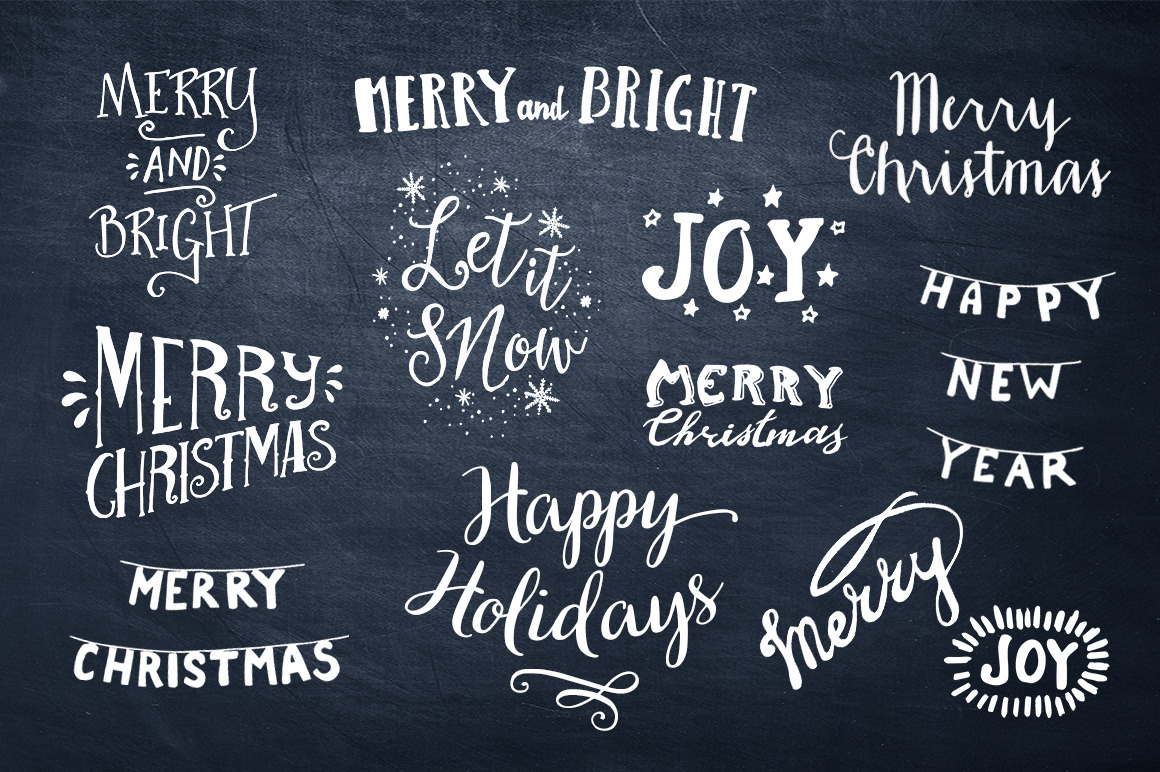 MERRY
AND
BRIGHT
MERRY and BRIGHT
Merry
Christmas
Let it
SNow
JOY
HAPPY
NEW
YEAR
MERRY
CHRISTMAS
MERRY
Christmas
Happy
Holidays
merry
JOY
MERRY
CHRISTMAS